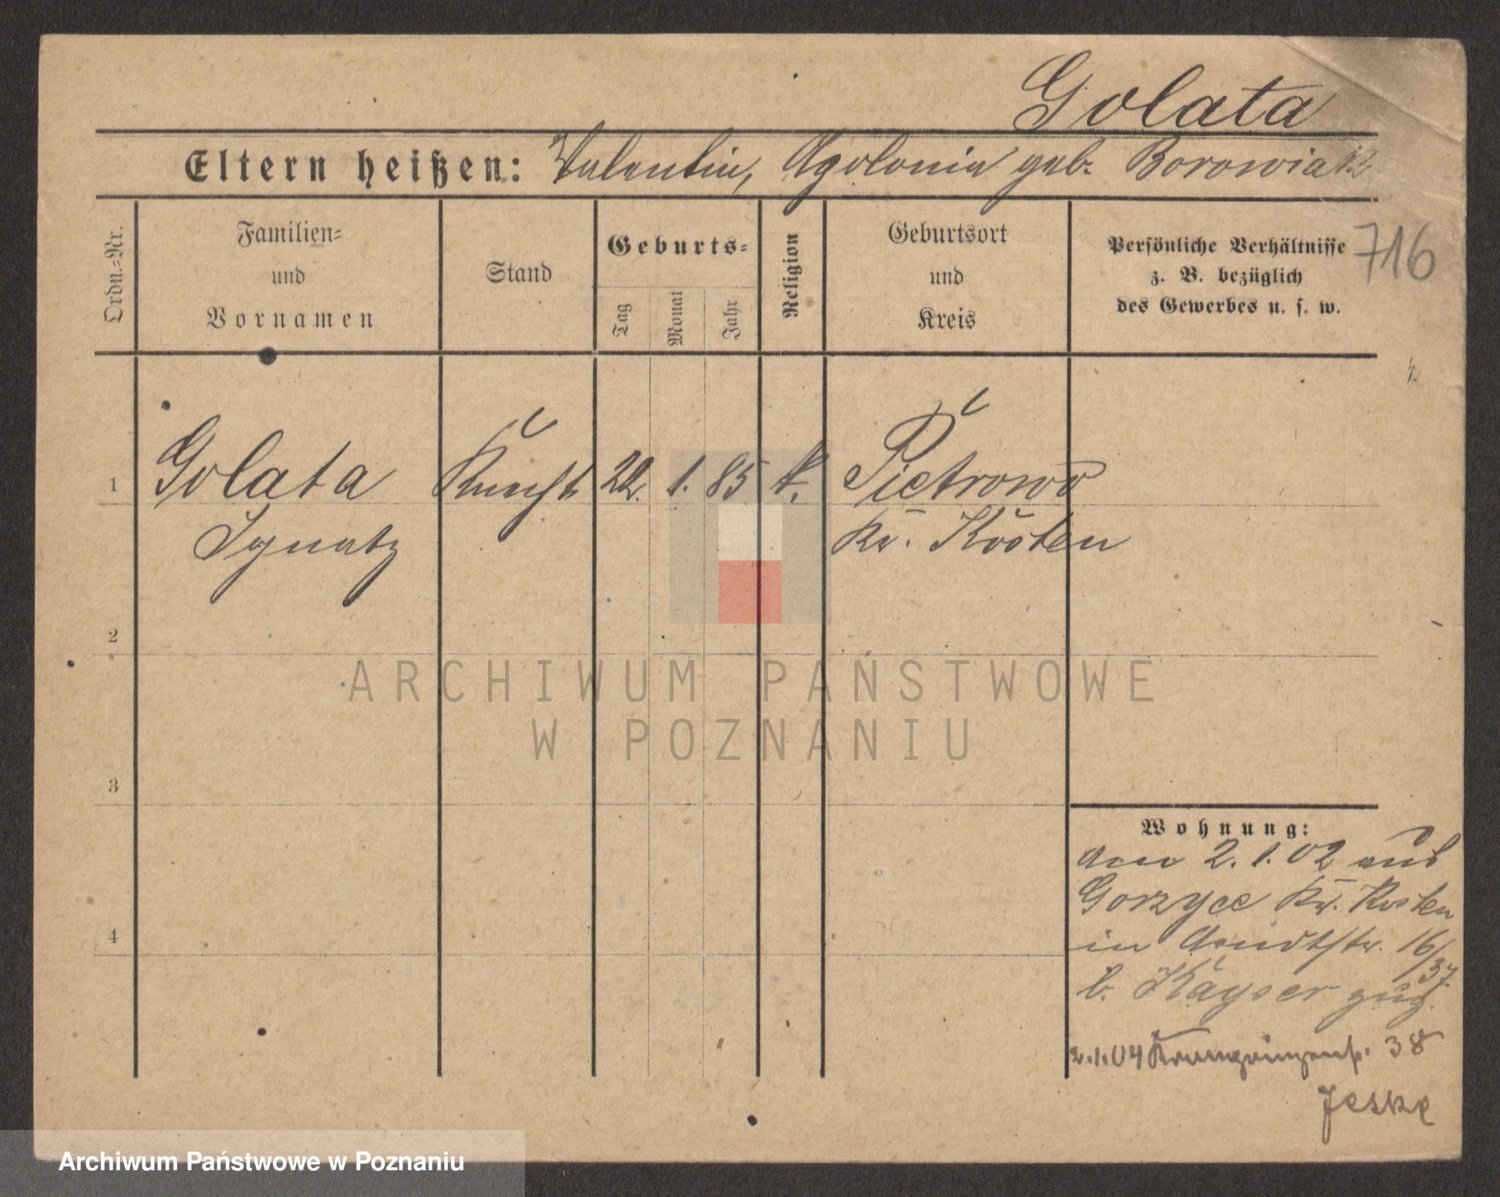 Golata
Eltern heißen: Valentin, Apolonia geb. Borowiak
716
Ordn.-Nr.
Familien-
und
Vornamen
Stand
Geburts-
Tag
Monat
Jahr
Religion
Geburtsort
und
Kreis
Persönliche Verhältnisse
z. B. bezüglich
des Gewerbes u. s. w.
1
Golata Knecht 22. 1. 85 k. Pietrowo
Ignatz Kr. Kosten
2
3
4
Wohnung:
am 2.1.02 aus
Gorzyce Kr. Kosten
in Arndtstr. 16/37
b. Kayser zug.
2.1.04 Kronprinzenstr. 38
Jeske
ARCHIWUM PAŃSTWOWE
W POZNANIU
Archiwum Państwowe w Poznaniu